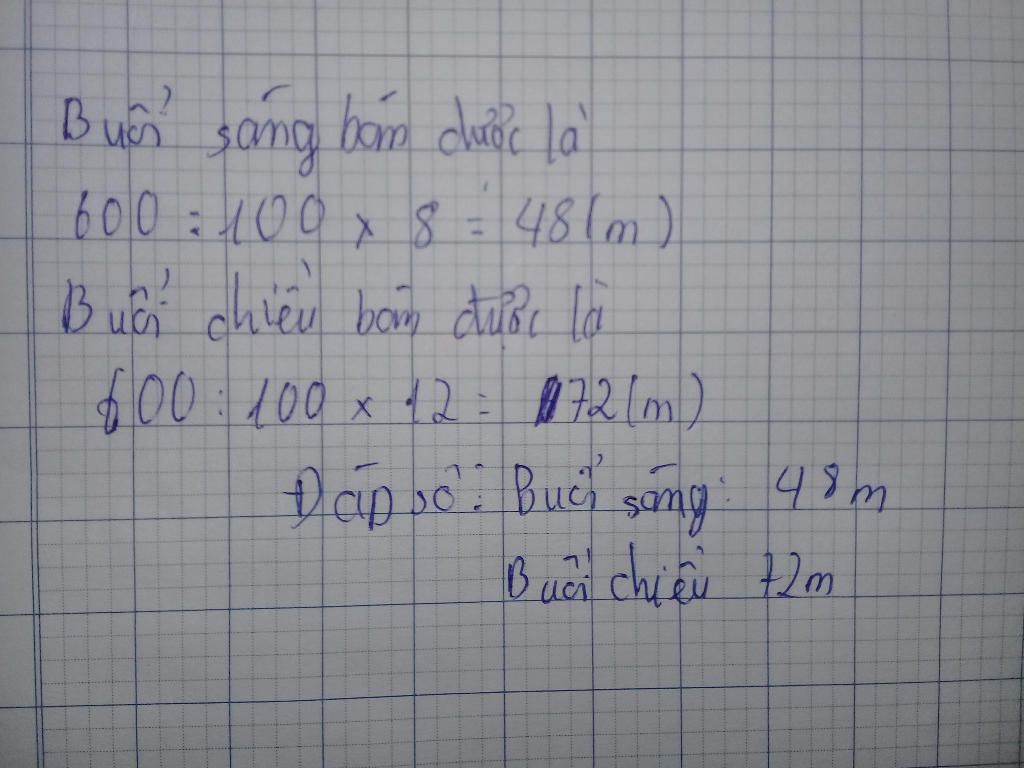 Buổi sáng bán được là
600 : 100 x 8 = 48 (m)
Buổi chiều bán được là
600 : 100 x 12 = 72 (m)
Đáp số : Buổi sáng : 48 m
Buổi chiều 72m